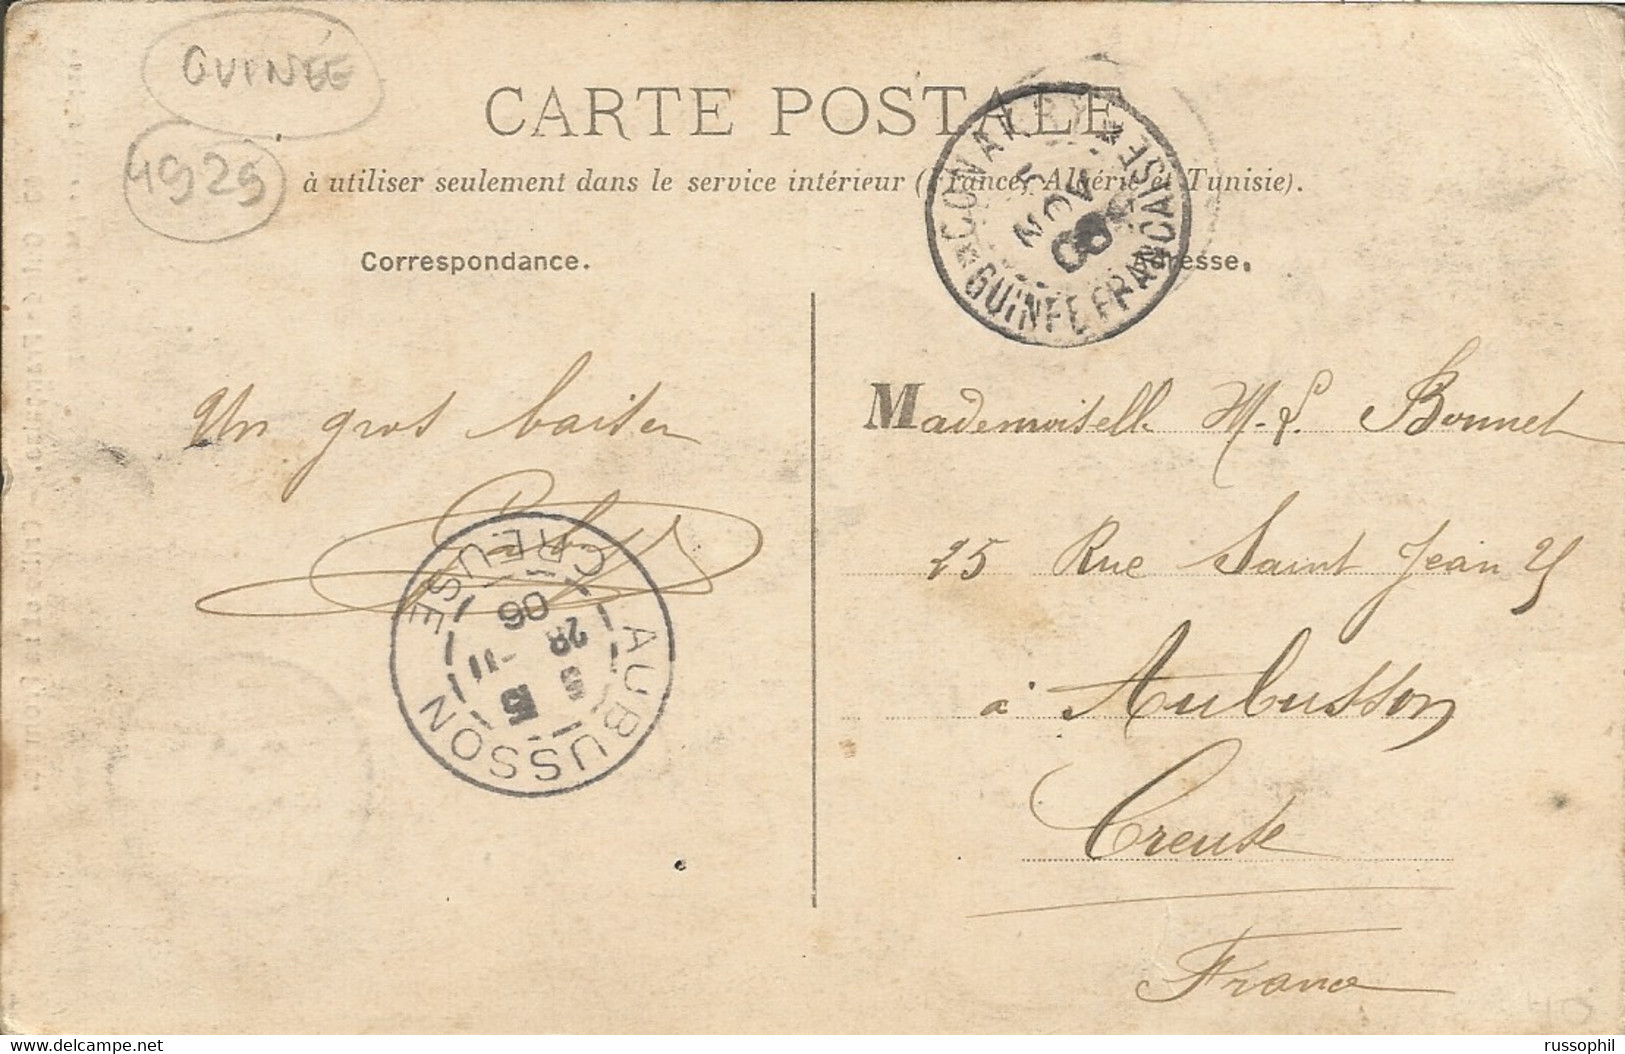 GUINÉE
4929
CARTE POSTALE
à utiliser seulement dans le service intérieur (France, Algérie et Tunisie).
Correspondance.
Adresse.
CONAKRY
GUINÉE FRANÇAISE
5
NOV
06
Un gros baiser
Mademoiselle M. L. Bonnet
25 Rue Saint Jean 25
à Aubusson
Creuse
France
AUBUSSON
CREUSE
28
-11
06
40
delcampe.net
russophil